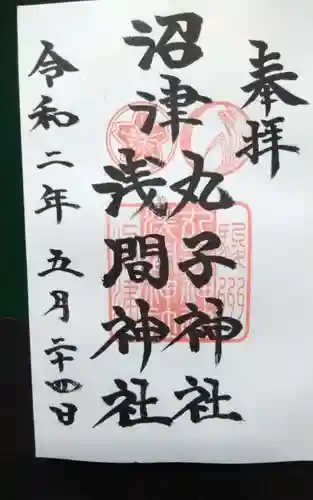 奉拝
沼津
丸子神社
浅間神社
令和二年五月二十四日